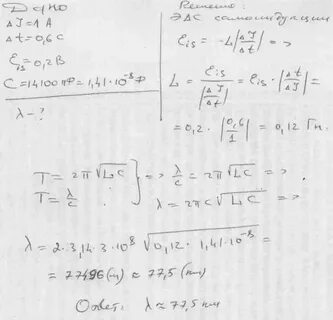 Дано
ΔI = 1 A
Δt = 0,6 c
Ɛis = 0,2 В
C = 14100 пФ = 1,41·10⁻⁸ Ф
λ - ?
Решение:
ЭДС самоиндукции
Ɛis = -L|ΔI/Δt| =>
L = Ɛis/|ΔI/Δt| = Ɛis·|Δt/ΔI| =
= 0,2·|0,6/1| = 0,12 Гн
T = 2π√LC
T = λ/c
} => λ/c = 2π√LC =>
λ = 2πc√LC =>
λ = 2·3,14·3·10⁸ √0,12·1,41·10⁻⁸ =
= 77496 (м) ≈ 77,5 (км)
Ответ: λ ≈ 77,5 км